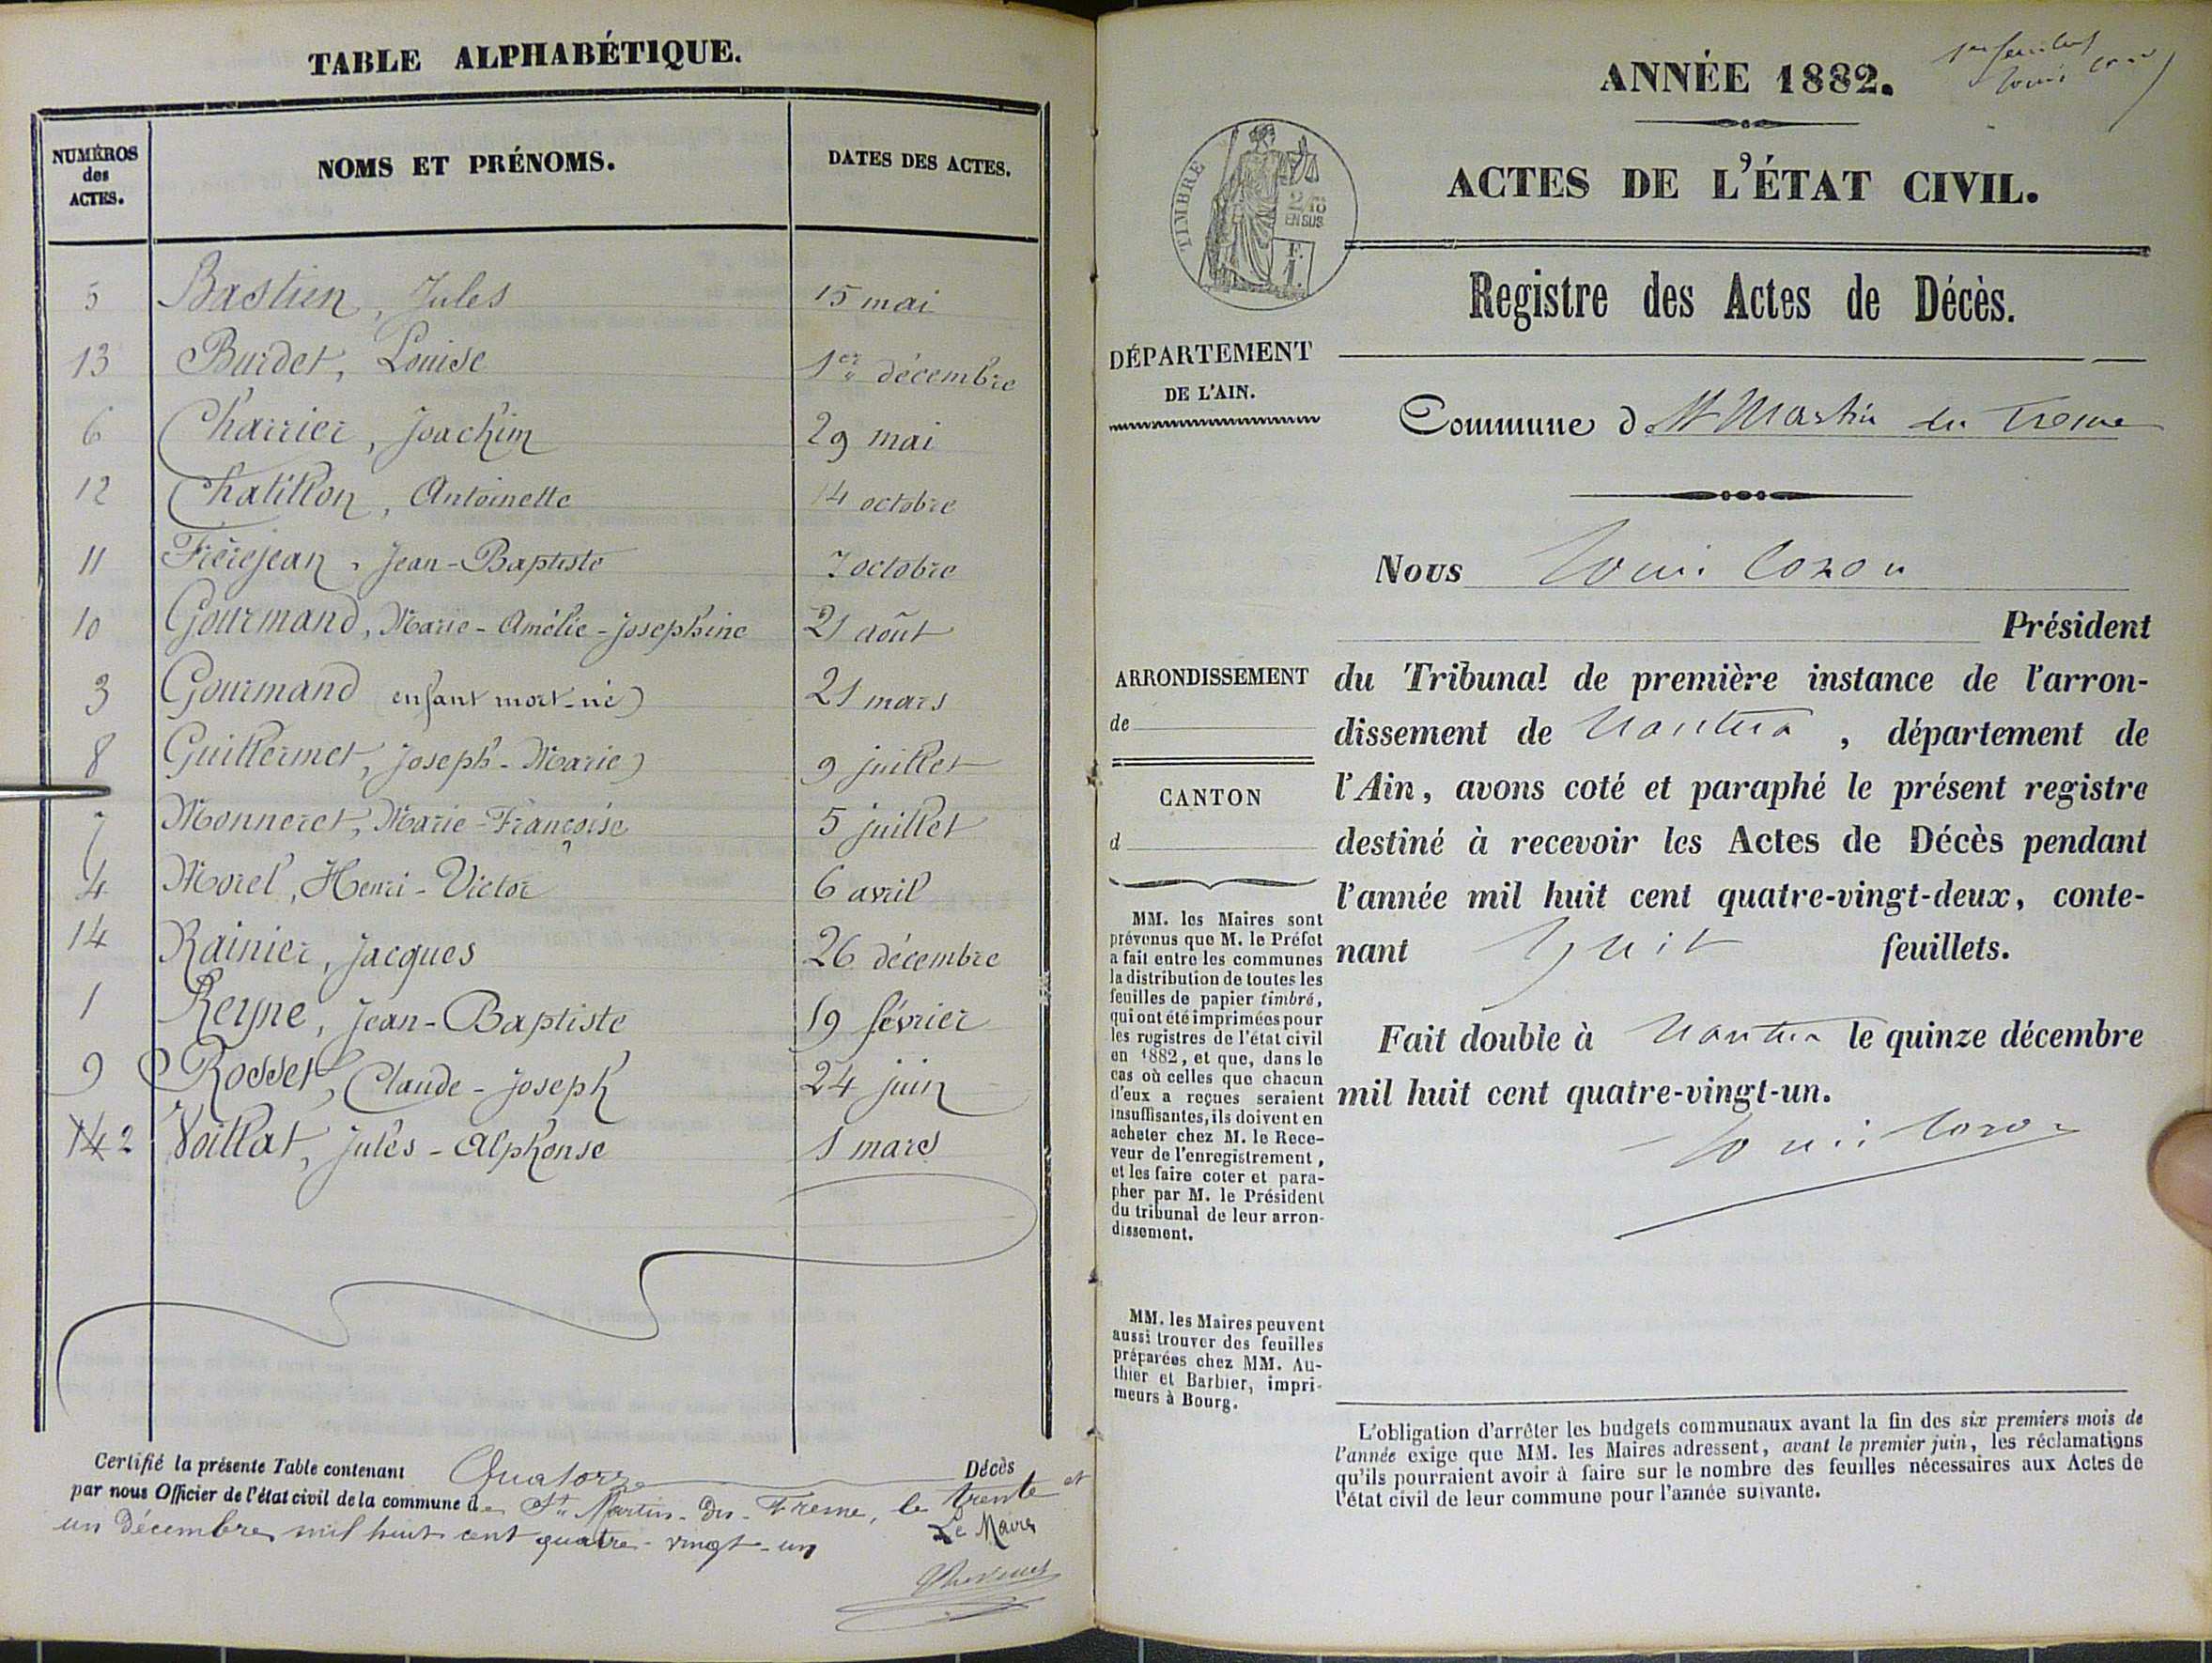 TABLE ALPHABÉTIQUE.
NUMÉROS
des
ACTES.
NOMS ET PRÉNOMS.
DATES DES ACTES.
5 Bastien, Jules 15 mai
13 Burdet, Louise 1er décembre
6 Charrier, Joachim 29 mai
12 Chatillon, Antoinette 14 octobre
11 Frèrejean, Jean-Baptiste 7 octobre
10 Gourmand, Marie-Amélie-Joséphine 21 août
3 Gourmand (enfant mort-né) 21 mars
8 Guillermet, Joseph-Marie 9 juillet
7 Monneret, Marie-Françoise 5 juillet
4 Morel, Henri-Victor 6 avril
14 Rainier, Jacques 26 décembre
1 Reyne, Jean-Baptiste 19 février
9 Rosset, Claude-Joseph 24 juin
14 2 Voillat, Jules-Alphonse 1 mars
Certifié la présente Table contenant Quatorze Décès
par nous Officier de l'état civil de la commune de St Martin-du-Fresne, le trente et
un Décembre mil huit cent quatre-vingt-un
Le Maire
ANNÉE 1882.
ACTES DE L'ÉTAT CIVIL.
TIMBRE
2/10
EN SUS
F.
1.
Registre des Actes de Décès.
DÉPARTEMENT
DE L'AIN.
Commune d St Martin du Fresne
Nous Louis Cozon
Président
ARRONDISSEMENT
de
CANTON
d
du Tribunal de première instance de l'arron-
dissement de Nantua, département de
l'Ain, avons coté et paraphé le présent registre
destiné à recevoir les Actes de Décès pendant
l'année mil huit cent quatre-vingt-deux, conte-
nant huit feuillets.
Fait double à Nantua le quinze décembre
mil huit cent quatre-vingt-un.
Louis Cozon
MM. les Maires sont
prévenus que M. le Préfet
a fait entre les communes
la distribution de toutes les
feuilles de papier timbré,
qui ont été imprimées pour
les registres de l'état civil
en 1882, et que, dans le
cas où celles que chacun
d'eux a reçues seraient
insuffisantes, ils doivent en
acheter chez M. le Rece-
veur de l'enregistrement,
et les faire coter et para-
pher par M. le Président
du tribunal de leur arron-
dissement.
MM. les Maires peuvent
aussi trouver des feuilles
préparées chez MM. Au-
thier et Barbier, impri-
meurs à Bourg.
L'obligation d'arrêter les budgets communaux avant la fin des six premiers mois de
l'année exige que MM. les Maires adressent, avant le premier juin, les réclamations
qu'ils pourraient avoir à faire sur le nombre des feuilles nécessaires aux Actes de
l'état civil de leur commune pour l'année suivante.